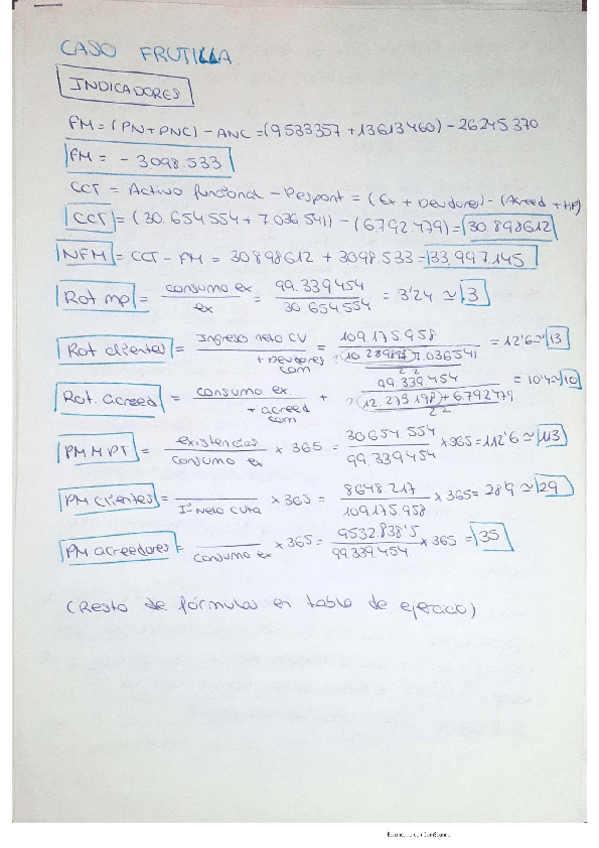 CASO FRUTILLA
INDICADORES
FM = (PN + PNC) - ANC = (9533357 + 13613460) - 26245370
FM = - 3.098.533
CCT = Activo funcional - Pespont = (Ex + Deudores) - (Acreed + HP)
CCT = (30.654554 + 7.036541) - (6.792479) = 30.898612
NFM = CCT - FM = 30898612 + 3098.533 = 33.997145
Rot mp = consumo ex / ex = 99.339454 / 30.654.554 = 3'24 ≃ 3
Rot clientes = Ingreso neto CV / + Deudores com = 109.175.958 / 7.036541 / 2 = 12'6 ≃ 13
Rot. acreed = consumo ex. / + acreed com + 99 339454 / 12.273.198 + 6.792479 / 2 = 10'4 ≃ 10
PM MPT = existencias / consumo ex × 365 = 30654.554 / 99.339454 × 365 = 112'6 ≃ 113
PM clientes = / Iº neto CVTA × 365 = 8648.217 / 109.175.958 × 365 = 28'9 ≃ 29
PM acreedores = / consumo ex × 365 = 9532.838'5 / 99339454 × 365 = 35
(Resto de fórmulas en tabla de ejercicio)